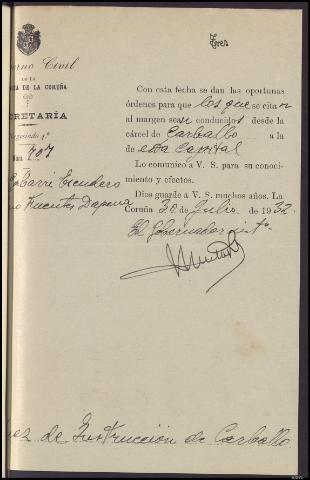 Tres
erno Civil
DE LA
IA DE LA CORUÑA
CRETARÍA
Negociado 1º
NÚM. 707
Escudero
Fuentes Dapena
Con esta fecha se dan las oportunas
órdenes para que los que se citan
al margen sean conducidos desde la
cárcel de Carballo a la
de esta Capital
Lo comunico a V. S. para su conoci-
miento y efectos.
Dios guarde a V. S. muchos años. La
Coruña 30 de Julio de 1932.
El Gobernador intº.
ez de Instrucción de Carballo